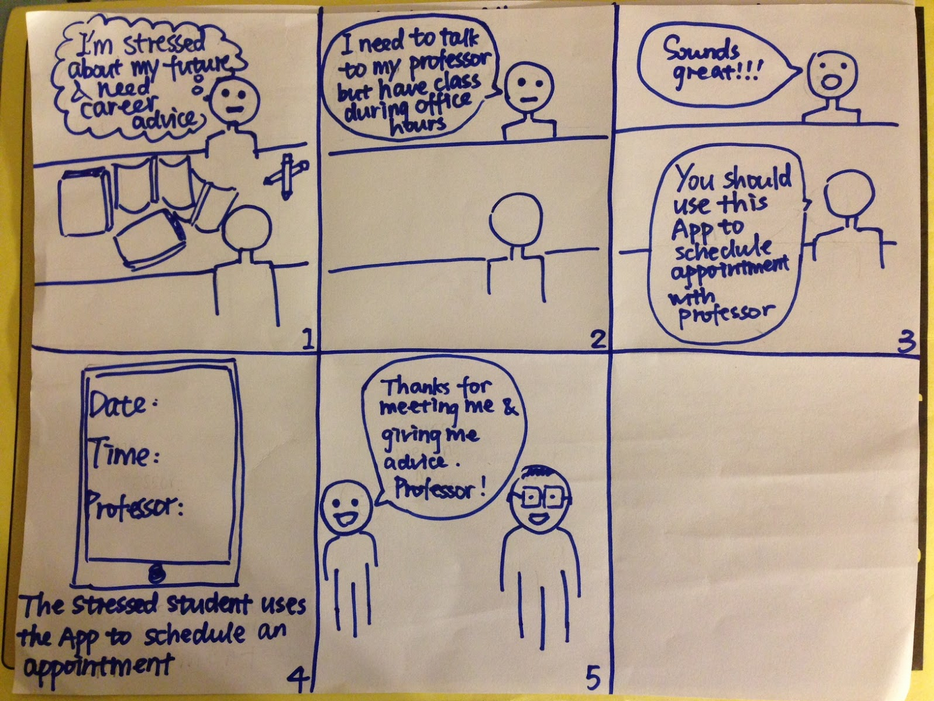 I'm stressed
about my future
need
career
advice
1
I need to talk
to my professor
but have class
during office
hours
2
Sounds
great!!!
You should
use this
App to
schedule
appointment
with
professor
3
Date:
Time:
Professor:
The stressed student uses
the App to schedule an
appointment
4
Thanks for
meeting me &
giving me
advice.
Professor!
5